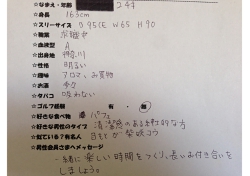 ☆なまえ・年齢 24才
☆身長 163cm
☆スリーサイズ B 95(E W65 H90
☆職業
☆血液型 A
☆出身地 神奈川
☆性格 明るい
☆趣味 アロマ、お買物
☆お酒
☆タバコ 吸わない
☆ゴルフ経験 有・無
☆好きな食べ物 パフェ
☆好きな男性のタイプ 清潔感のある紳士的な方
☆似ている?有名人 目もとが 柴咲コウ
☆男性会員さまへメッセージ
一緒に楽しい時間をつくり、長いお付き合いを
しましょう。